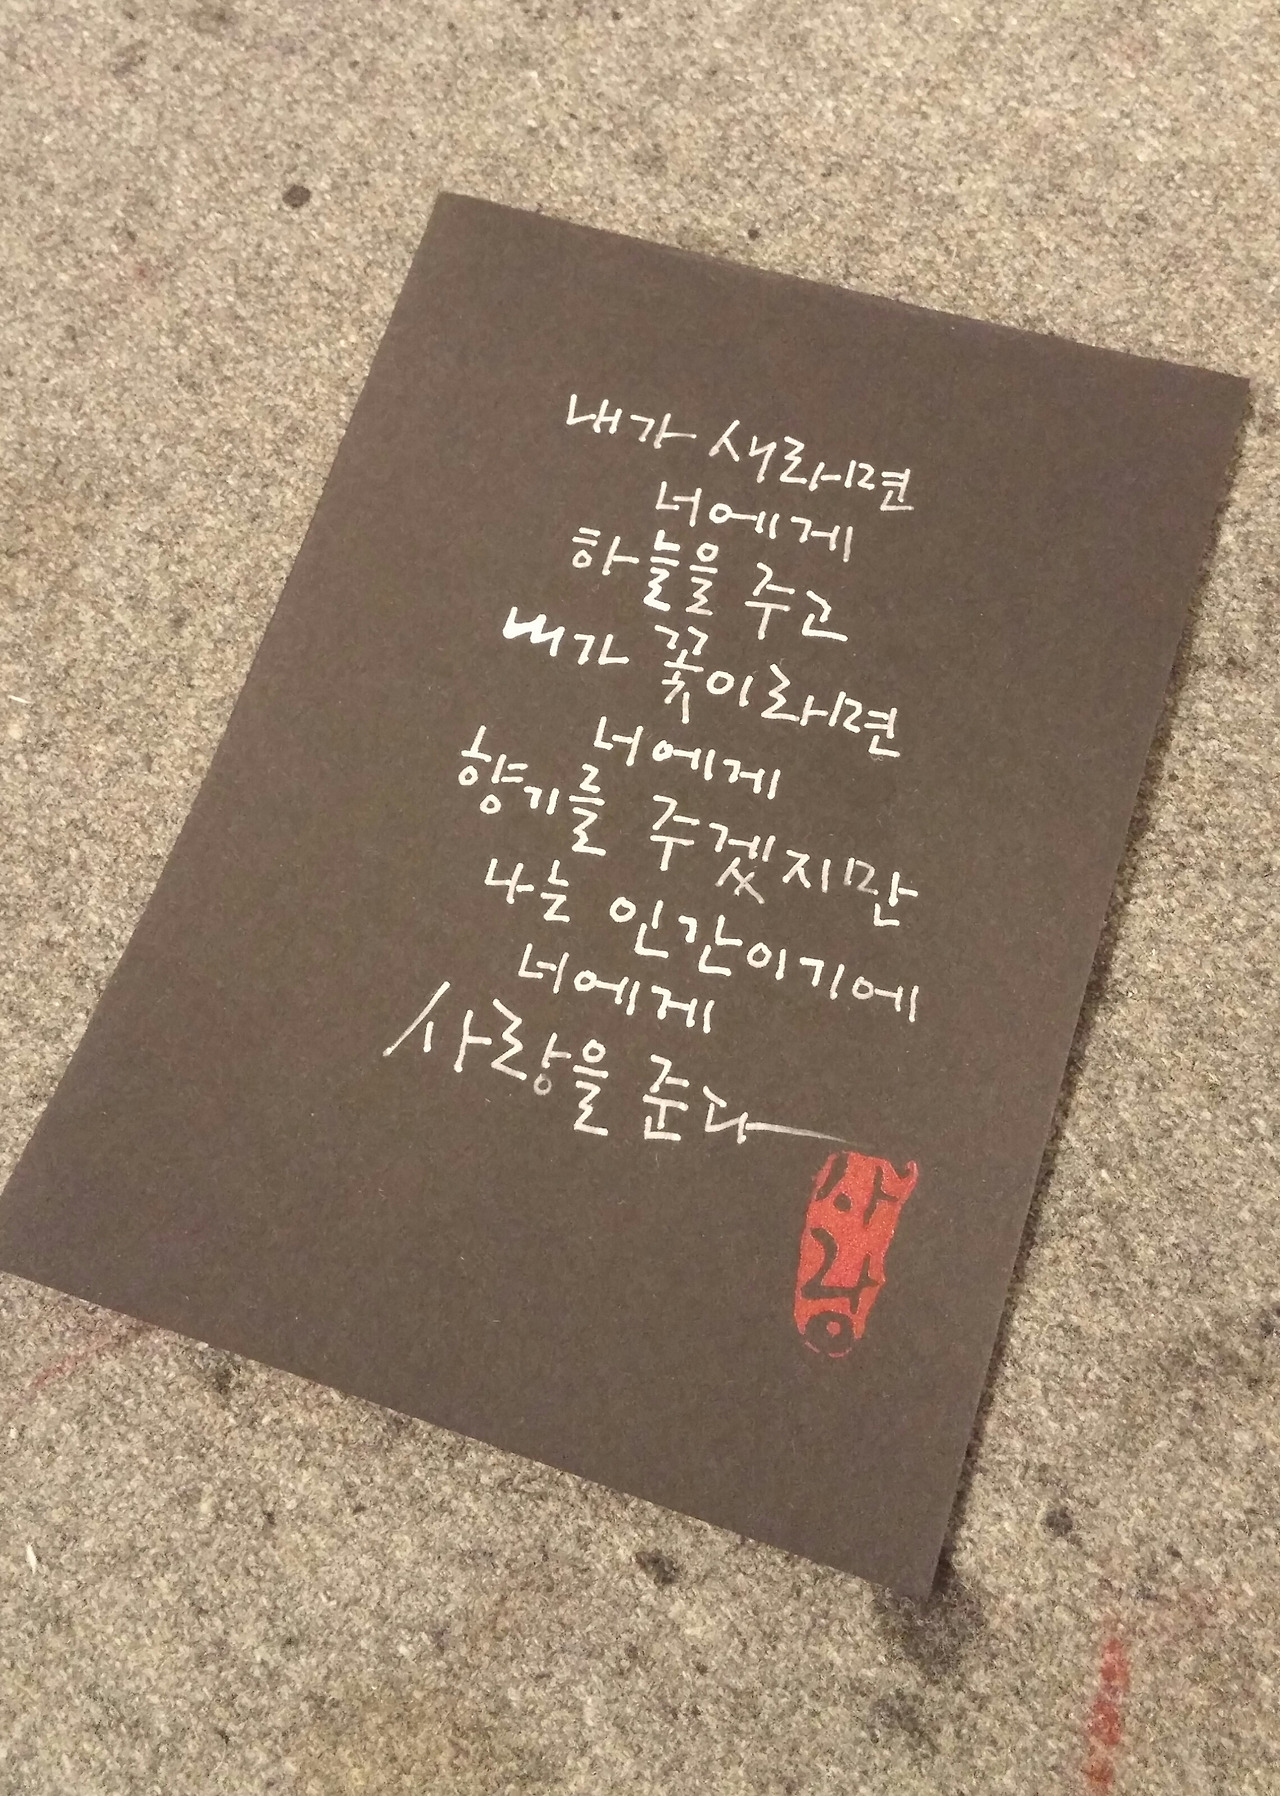 내가 새라면
너에게
하늘을 주고
내가 꽃이라면
너에게
향기를 주겠지만
나는 인간이기에
너에게
사랑을 준다
사랑